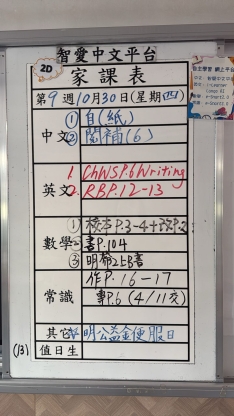 智愛中文平台
2D
家課表
第9週10月30日(星期四)
中文
①自(紙)
②閱補(6)
英文
1. ChWSP.6Writing
2. RBP.12-13
數學
①校本P.3-4+改P.2
②書P.104
③明帶25B書
常識
作P.16-17
專P.6 (4/11交)
其它
明公益金便服日
(13)
值日生